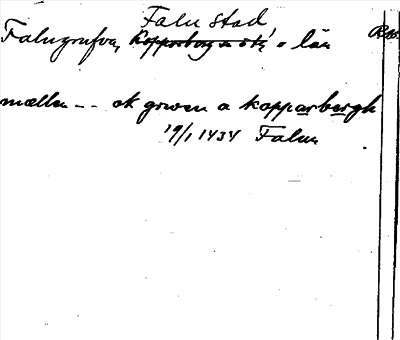 Falu stad
Falugrufva, Kopparberg s ö k:s län
mællin -- ok grwen a kopparbergh
19/1 1434 Falun